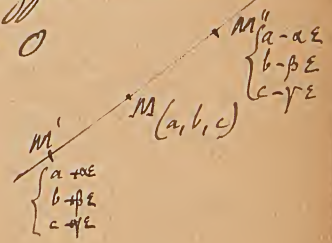 M''
{ a - αε
b - βε
c - γε
M (a, b, c)
M'
{ a + αε
b + βε
c + γε